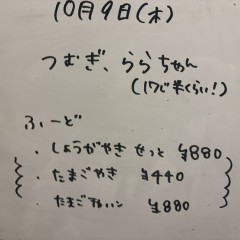 10月9日(木)
つむぎ、ららちゃん
(17じ半くらい!)
ふぃーど
・しょうがやき せっと ¥880
・たまごやき ¥440
・たまごチャハン ¥880